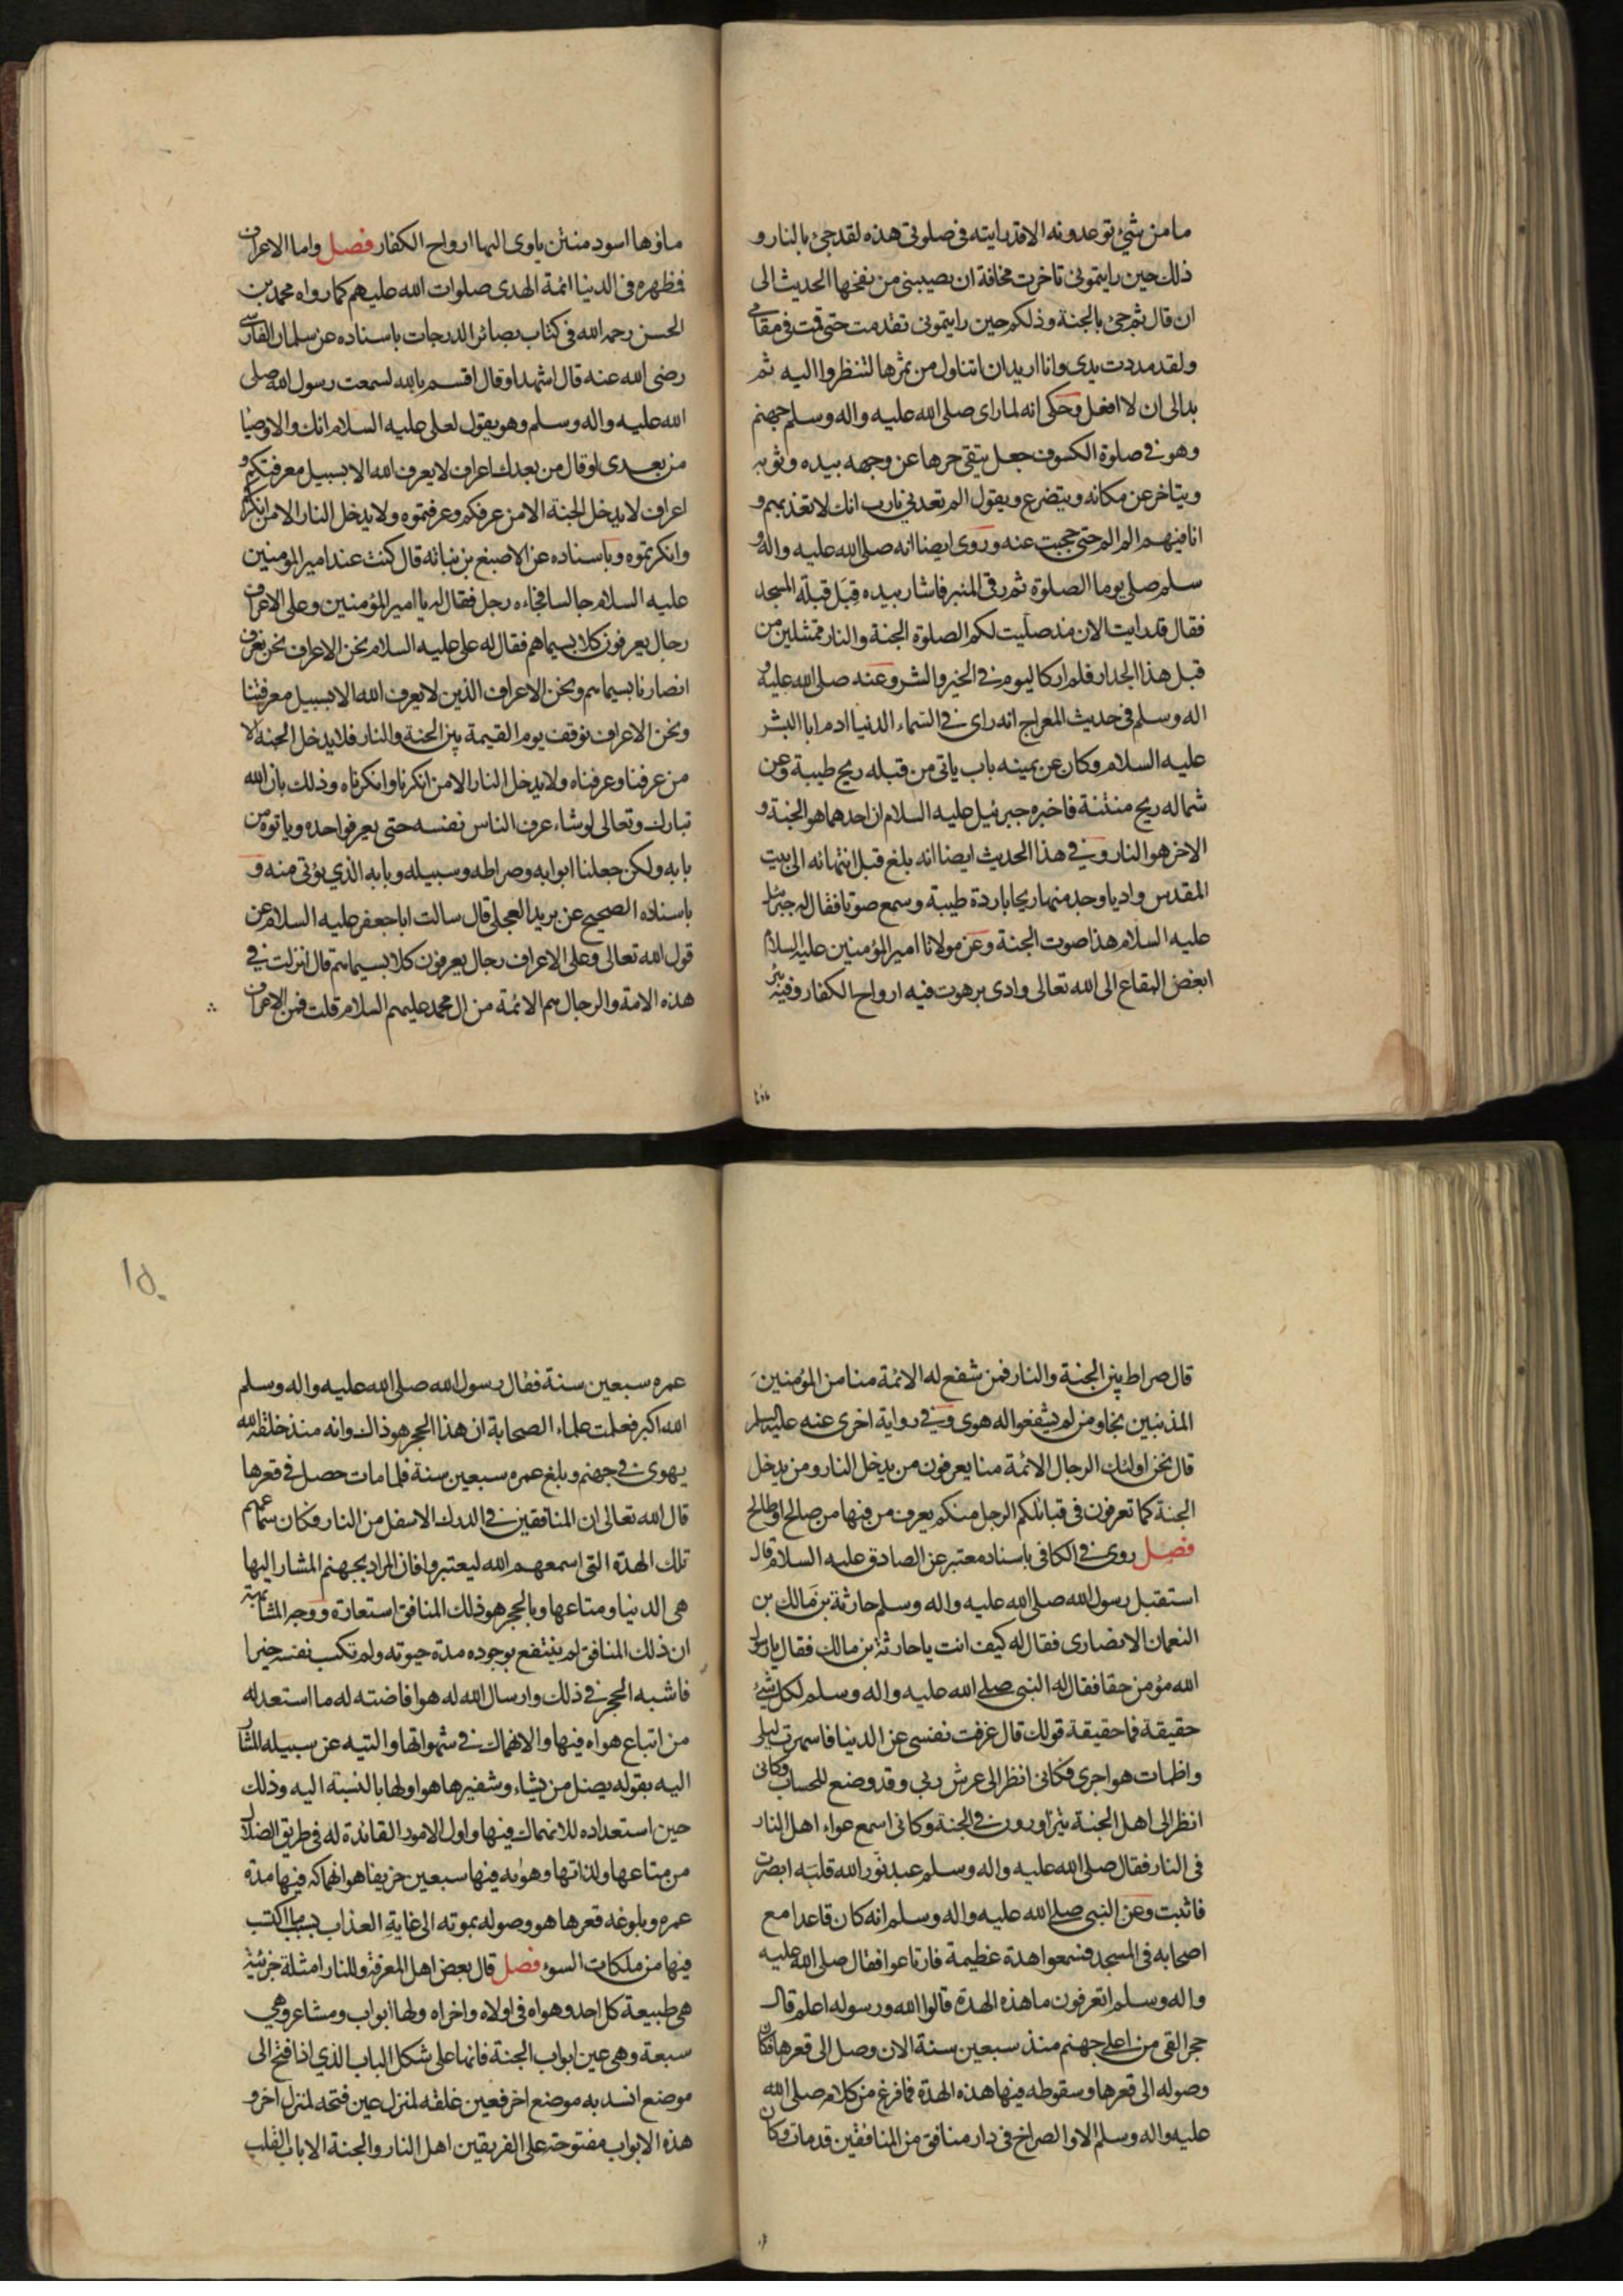 ما من شئ توعدونه الا قد رايته فى صلوتى هذه لقد جئ بالنار و
ذلك حين رايتمونى تاخرت مخافة ان يصيبنى من نفخها الحديث الى
ان قال ثم جئ بالجنة وذلكم حين رايتمونى تقدمت حتى قمت فى مقامى
ولقد مددت يدى وانا اريد ان اتناول من ثمرها لتنظروا اليه ثم
بدا لى ان لا افعل وحكى انه لما راى صلى الله عليه واله وسلم جهنم
وهو فى صلوة الكسوف جعل يتقى حرها عن وجهه بيده وثوبه
ويتاخر عن مكانه ويتضرع ويقول الم تعدنى يارب انك لا تعذبهم و
انا فيهم الم الم حتى حجبت عنه وروى ايضا انه صلى الله عليه واله و
سلم صلى يوما الصلوة ثم رقى المنبر فاشار بيده قِبَل قبلة المسجد
فقال قد رايت الان مذ صليت لكم الصلوة الجنة والنار ممثلين من
قبل هذا الجدار فلم ار كاليوم فى الخير والشر وعنه صلى الله عليه و
اله وسلم فى حديث المعراج انه راى فى السماء الدنيا ادم ابا البشر
عليه السلام وكان عن يمينه باب ياتى من قبله ريح طيبة وعن
شماله ريح منتنة فاخبره جبرئيل عليه السلام ان احدهما هو الجنة و
الاخر هو النار وفى هذا الحديث ايضا انه بلغ قبل انتهائه الى بيت
المقدس واديا وجد منها ريحا باردة طيبة وسمع صوتا فقال له جبرئيل
عليه السلام هذا صوت الجنة وعن مولانا امير المؤمنين عليه السلام
ابغض البقاع الى الله تعالى وادى برهوت فيه ارواح الكفار وفيه بئر
ماؤها
ماؤها اسود منتن ياوى اليها ارواح الكفار فصل واما الاعراف
فظهره فى الدنيا ائمة الهدى صلوات الله عليهم كما رواه محمد بن
الحسن رحمه الله فى كتاب بصائر الدرجات باسناده عن سلمان الفارسى
رضى الله عنه قال اشهد او قال اقسم بالله لسمعت رسول الله صلى
الله عليه واله وسلم وهو يقول لعلى عليه السلام انك والاوصيا
من بعدى او قال من بعدك اعراف لا يعرف الله الا بسبيل معرفتكم و
اعراف لا يدخل الجنة الا من عرفكم وعرفتموه ولا يدخل النار الا من انكركم
وانكرتموه وباسناده عن الاصبغ بن نباته قال كنت عند امير المؤمنين
عليه السلام جالسا فجاءه رجل فقال له يا امير المؤمنين وعلى الاعراف
رجال يعرفون كلا بسيماهم فقال له على عليه السلام نحن الاعراف نحن نعرف
انصارنا بسيماهم ونحن الاعراف الذين لا يعرف الله الا بسبيل معرفتنا
ونحن الاعراف نوقف يوم القيمة بين الجنة والنار فلا يدخل الجنة الا
من عرفنا وعرفناه ولا يدخل النار الا من انكرنا وانكرناه وذلك بان الله
تبارك وتعالى لو شاء عرف الناس نفسه حتى يعرفوا حده وياتوه من
بابه ولكن جعلنا ابوابه وصراطه وسبيله وبابه الذي يؤتى منه و
باسناده الصحيح عن بريد العجلى قال سالت ابا جعفر عليه السلام عن
قول الله تعالى وعلى الاعراف رجال يعرفون كلا بسيماهم قال انزلت فى
هذه الامة والرجال هم الائمة من ال محمد عليهم السلام قلت فمن الاعراف
١٥٠
قال صراط بين الجنة والنار فمن شفع له الائمة منا من المؤمنين
المذنبين نجا ومن لم يشفعوا له هوى وفى رواية اخرى عنه عليه السلم
قال نحن اولئك الرجال الائمة منا يعرفون من يدخل النار ومن يدخل
الجنة كما تعرفون فى قبائلكم الرجل منكم يعرف من فيها من صالح او طالح
فصل روى فى الكافى باسناد معتبر عن الصادق عليه السلام قال
استقبل رسول الله صلى الله عليه واله وسلم حارثة بن مالك بن
النعمان الانصارى فقال له كيف انت يا حارثة بن مالك فقال يا رسول
الله مؤمن حقا فقال له النبى صلى الله عليه واله وسلم لكل شئ
حقيقة فما حقيقة قولك قال عزفت نفسى عن الدنيا فاسهرت ليلى
واظمات هواجرى فكانى انظر الى عرش ربى وقد وضع للحساب وكانى
انظر الى اهل الجنة يتزاورون فى الجنة وكانى اسمع عواء اهل النار
فى النار فقال صلى الله عليه واله وسلم عبد نور الله قلبه ابصرت
فاثبت وعن النبى صلى الله عليه واله وسلم انه كان قاعدا مع
اصحابه فى المسجد فسمعوا هدة عظيمة فارتاعوا فقال صلى الله عليه
واله وسلم اتعرفون ما هذه الهدة قالوا الله ورسوله اعلم قال
حجر القى من اعلى جهنم منذ سبعين سنة الان وصل الى قعرها فكان
وصوله الى قعرها وسقوطه فيها هذه الهدة فما فرغ من كلام صلى الله
عليه واله وسلم الا والصراخ فى دار منافق من المنافقين قد مات وكان
عمره سبعين سنة فقال رسول الله صلى الله عليه واله وسلم
الله اكبر فعلمت علماء الصحابة ان هذا الحجر هو ذاك وانه منذ خلقه الله
يهوى فى جهنم وبلغ عمره سبعين سنة فلما مات حصل فى قعرها
قال الله تعالى ان المنافقين فى الدرك الاسفل من النار فكان سماعهم
تلك الهدة التى اسمعهم الله ليعتبروا فان المراد بجهنم المشار اليها
هى الدنيا ومتاعها وبالحجر هو ذلك المنافق استعارة ووجه المشابهة
ان ذلك المنافق لم ينتفع بوجوده مدة حيوته ولم تكسب نفسه خيرا
فاشبه الحجر فى ذلك وارسال الله له هو افاضته له ما استعد له
من اتباع هواه فيها والانهماك فى شهواتها والتيه عن سبيله المشار
اليه بقوله يضل من يشاء وشفيرها هو اولها بالنسبة اليه وذلك
حين استعداده للانهماك فيها واول الامور القائدة له فى طريق الضلال
من متاعها ولذاتها وهويه فيها سبعين خريفا هو انهماكه فيها مدة
عمره وبلوغه قعرها هو وصوله بموته الى غاية العذاب بسبب ما اكتسب
فيها من ملكات السوء فصل قال بعض اهل المعرفة وللنار امثلة جزئية
هى طبيعة كل احد وهواه فى اولاه واخراه ولها ابواب ومشاعر وهى
سبعة وهى عين ابواب الجنة فانها على شكل الباب الذي اذا فتح الى
موضع انسد به موضع اخر فعين غلقه لمنزل عين فتحه لمنزل اخر و
هذه الابواب مفتوحة على الفريقين اهل النار والجنة الا باب القلب